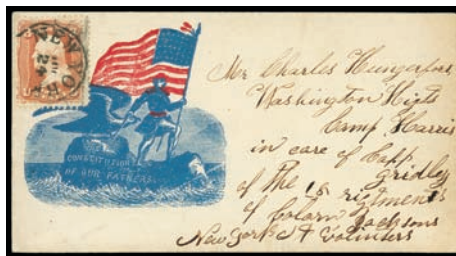 NEW YORK
24
CONSTITUTION &
OF OUR FATHERS
Mr Charles Hungerford
Washington Hights
Camp Harris
in care of Capp
gridley
of the 18 rigtments
of Colarn Jacksons
New York St Volunters